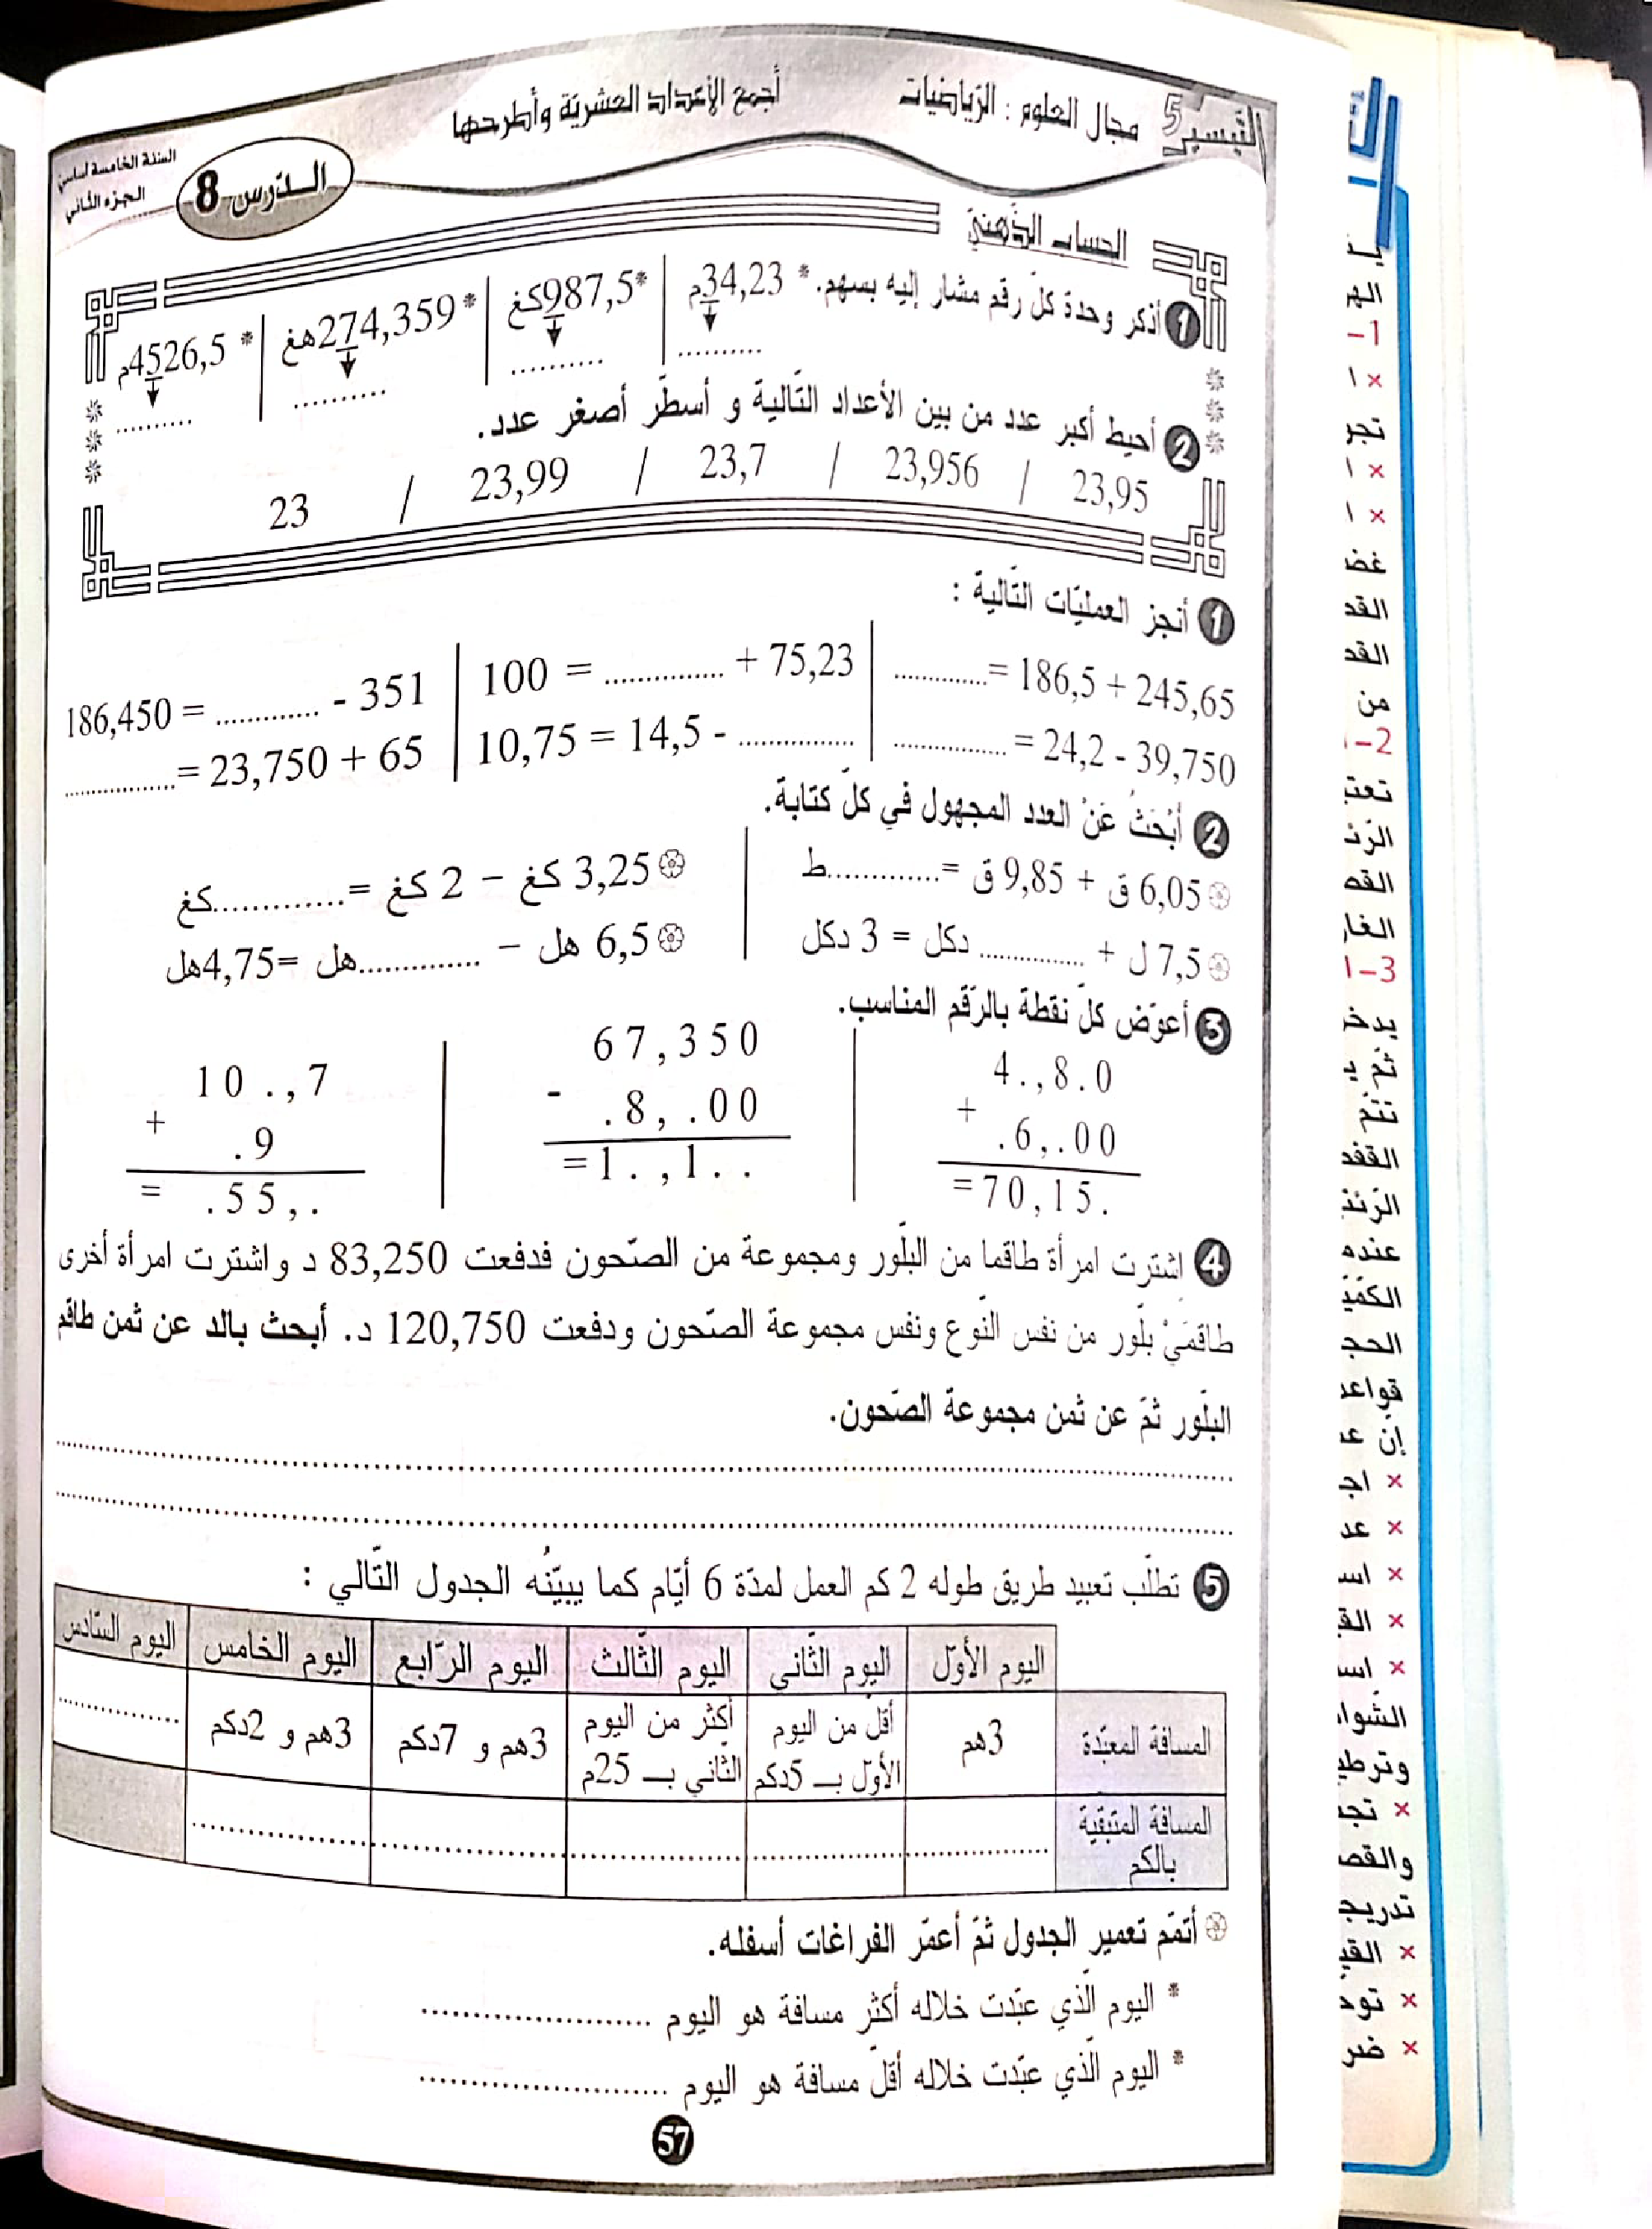 التيسير 5 مجال العلوم : الرياضيات أجمع الأعداد العشريّة وأطرحها
السنة الخامسة أساسي
الجزء الثاني
الدّرس 8
الحساب الذّهنيّ
1 أذكر وحدة كلّ رقم مشار إليه بسهم. * 34,23م | * 987,5كغ | * 274,359هغ | * 4526,5م
............... ............... ............... ...............
2 أحيط أكبر عدد من بين الأعداد التّالية و أسطّر أصغر عدد.
23,95 / 23,956 / 23,7 / 23,99 / 23
1 أنجز العمليّات التّالية :
245,65 + 186,5 = ............. | 75,23 + ............. = 100 | 351 - ............. = 186,450
39,750 - 24,2 = ............. | ............. - 14,5 = 10,75 | 65 + 23,750 = .............
2 أبْحَثُ عَنْ العدد المجهول في كلّ كتابة.
6,05 ق + 9,85 ق = .............ط | 3,25 كغ – 2 كغ = .............كغ
7,5 ل + ............. دكل = 3 دكل | 6,5 هل – .............هل =4,75هل
3 أعوّض كلّ نقطة بالرّقم المناسب.
4.,8.0 | 67,350 | 10.,7
+ .6,.00 | - .8,.00 | + .9
=70,15. | =1.,1.. | = .55,.
4 اشترت امرأة طاقما من البلّور ومجموعة من الصّحون فدفعت 83,250 د واشترت امرأة أخرى
طاقمَيْ بلّور من نفس النّوع ونفس مجموعة الصّحون ودفعت 120,750 د. أبحث بالد عن ثمن طاقم
البلّور ثمّ عن ثمن مجموعة الصّحون.
5 تطلّب تعبيد طريق طوله 2 كم العمل لمدّة 6 أيّام كما يبيّنُه الجدول التّالي :
اليوم الأوّل | اليوم الثّاني | اليوم الثّالث | اليوم الرّابع | اليوم الخامس | اليوم السّادس
المسافة المعبّدة | 3هم | أقلّ من اليوم الأوّل بـ 5دكم | أكثر من اليوم الثّاني بـ 25م | 3هم و 7دكم | 3هم و 2دكم | .............
المسافة المتبقية بالكم | ............. | ............. | ............. | ............. | .............
أتمّم تعمير الجدول ثمّ أعمّر الفراغات أسفله.
* اليوم الّذي عبّدت خلاله أكثر مسافة هو اليوم .........................
* اليوم الّذي عبّدت خلاله أقلّ مسافة هو اليوم .........................
57